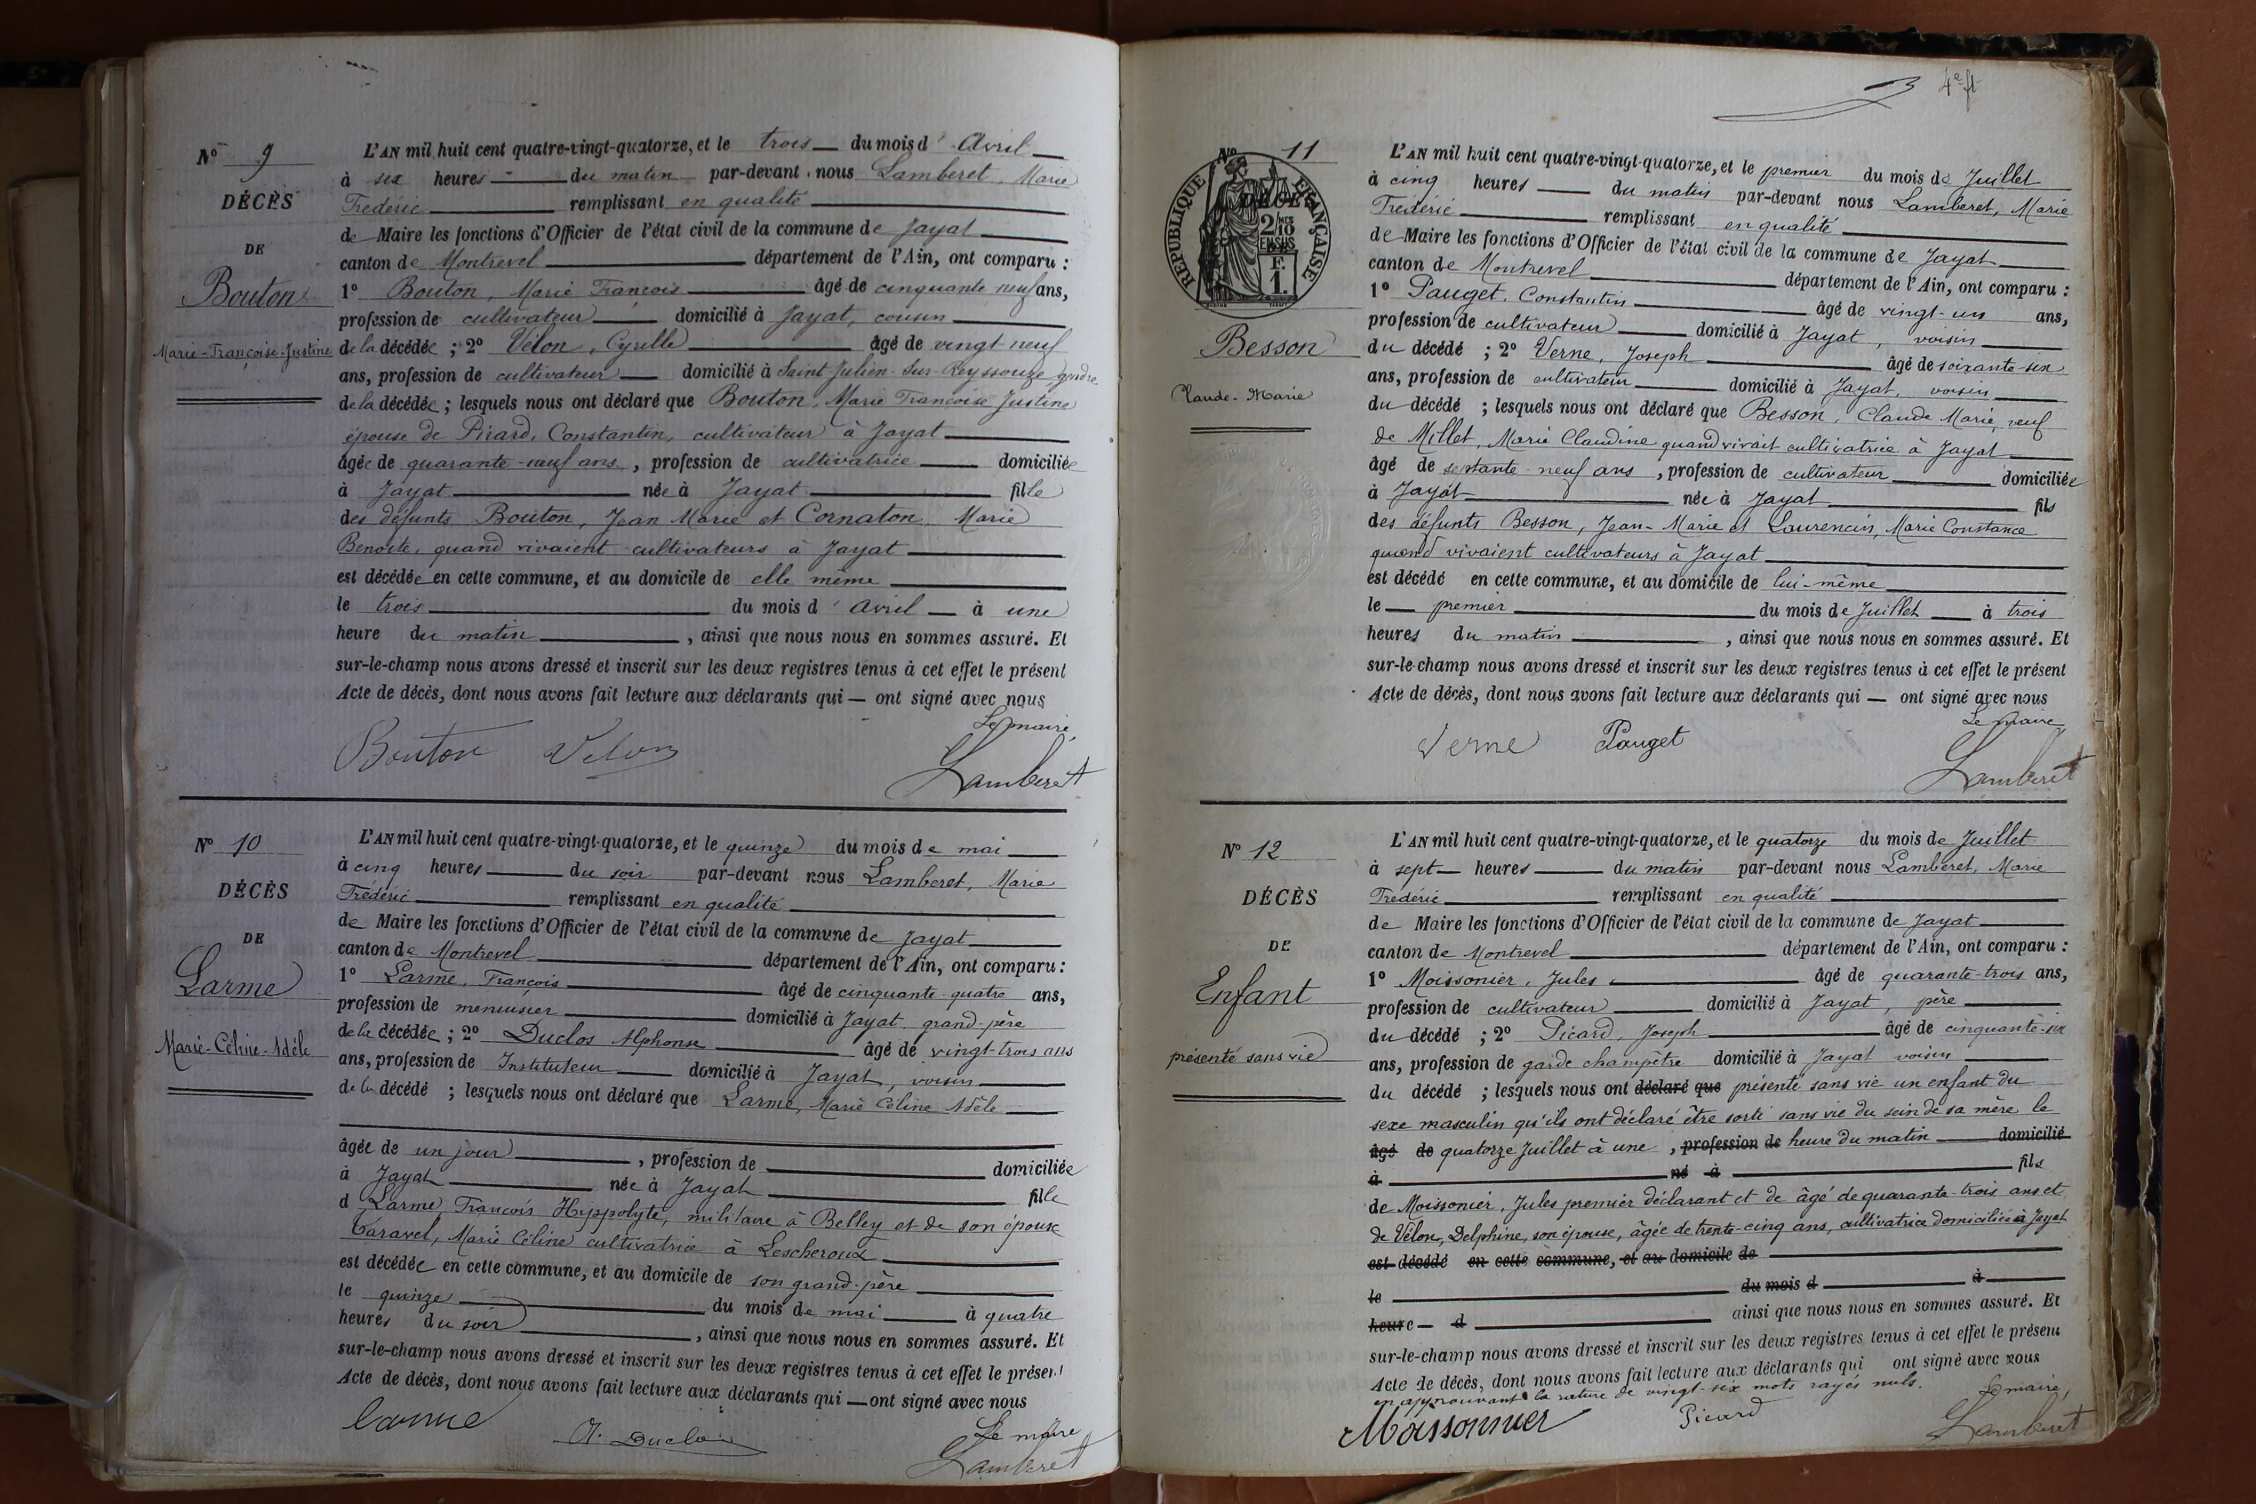 N° 9
DÉCÈS
DE
Bouton
Marie-Françoise-Justine
L'AN mil huit cent quatre-vingt-quatorze, et le trois du mois d' Avril
à six heures du matin par-devant nous Lamberet, Marie
Frédéric remplissant en qualité
de Maire les fonctions d'Officier de l'état civil de la commune de Jayat
canton de Montrevel département de l'Ain, ont comparu :
1° Bouton, Marie François âgé de cinquante neuf ans,
profession de cultivateur domicilié à Jayat, cousin
de la décédée ; 2° Velon, Cyrille âgé de vingt neuf
ans, profession de cultivateur domicilié à Saint Julien-Sur-Reyssouze, gendre
de la décédée ; lesquels nous ont déclaré que Bouton, Marie Françoise Justine
épouse de Pirard, Constantin, cultivateur à Jayat
âgée de quarante-neuf ans, profession de cultivatrice domiciliée
à Jayat née à Jayat fille
des défunts Bouton, Jean Marie et Cornaton, Marie
Benoite, quand vivaient cultivateurs à Jayat
est décédée en cette commune, et au domicile de elle même
le trois du mois d' avril à une
heure du matin, ainsi que nous nous en sommes assuré. Et
sur-le-champ nous avons dressé et inscrit sur les deux registres tenus à cet effet le présent
Acte de décès, dont nous avons fait lecture aux déclarants qui — ont signé avec nous
Le maire,
Bouton Velon Lamberet
N° 10
DÉCÈS
DE
Larme
Marie-Céline-Adèle
L'AN mil huit cent quatre-vingt-quatorze, et le quinze du mois de mai
à cinq heures du soir par-devant nous Lamberet, Marie
Frédéric remplissant en qualité
de Maire les fonctions d'Officier de l'état civil de la commune de Jayat
canton de Montrevel département de l'Ain, ont comparu :
1° Larme, François âgé de cinquante-quatre ans,
profession de menuisier domicilié à Jayat grand-père
de la décédée ; 2° Duclos Alphonse âgé de vingt-trois ans
ans, profession de Instituteur domicilié à Jayat, voisin
de la décédé ; lesquels nous ont déclaré que Larme, Marie Céline Adèle
âgée de un jour, profession de domiciliée
à Jayat née à Jayat fille
d Larme François Hyppolyte, militaire à Belley et de son épouse
Caravel, Marie Céline cultivatrice à Lescheroux
est décédée en cette commune, et au domicile de son grand-père
le quinze du mois de mai à quatre
heures du soir, ainsi que nous nous en sommes assuré. Et
sur-le-champ nous avons dressé et inscrit sur les deux registres tenus à cet effet le présent
Acte de décès, dont nous avons fait lecture aux déclarants qui — ont signé avec nous
Le maire
Larme A. Duclos Lamberet
4e ft
N° 11
DÉCÈS
RÉPUBLIQUE FRANÇAISE
2/10 EN SUS
F. 1.
Besson
Claude-Marie
L'AN mil huit cent quatre-vingt-quatorze, et le premier du mois de Juillet
à cinq heures du matin par-devant nous Lamberet, Marie
Frédéric remplissant en qualité
de Maire les fonctions d'Officier de l'état civil de la commune de Jayat
canton de Montrevel département de l'Ain, ont comparu :
1° Pauget, Constantin âgé de vingt-un ans,
profession de cultivateur domicilié à Jayat, voisin
du décédé ; 2° Verne, Joseph âgé de soixante-six
ans, profession de cultivateur domicilié à Jayat, voisin
du décédé ; lesquels nous ont déclaré que Besson, Claude Marie, veuf
de Millet, Marie Claudine quand vivait cultivatrice à Jayat
âgé de septante-neuf ans, profession de cultivateur domiciliée
à Jayat née à Jayat fils
des défunts Besson, Jean-Marie et Laurencin, Marie Constance
quand vivaient cultivateurs à Jayat
est décédé en cette commune, et au domicile de lui-même
le premier du mois de Juillet à trois
heures du matin, ainsi que nous nous en sommes assuré. Et
sur-le-champ nous avons dressé et inscrit sur les deux registres tenus à cet effet le présent
Acte de décès, dont nous avons fait lecture aux déclarants qui — ont signé avec nous
Le maire
Verne Pauget Lamberet
N° 12
DÉCÈS
DE
Enfant
présenté sans vie
L'AN mil huit cent quatre-vingt-quatorze, et le quatorze du mois de Juillet
à sept heures du matin par-devant nous Lamberet, Marie
Frédéric remplissant en qualité
de Maire les fonctions d'Officier de l'état civil de la commune de Jayat
canton de Montrevel département de l'Ain, ont comparu :
1° Moissonier, Jules âgé de quarante-trois ans,
profession de cultivateur domicilié à Jayat, père
du décédé ; 2° Picard, Joseph âgé de cinquante-six
ans, profession de garde champêtre domicilié à Jayat voisin
du décédé ; lesquels nous ont déclaré que présenté sans vie un enfant du
sexe masculin qu'ils ont déclaré être sorti sans vie du sein de sa mère le
âgé de quatorze Juillet à une, profession de heure du matin domicilié
à né à fils
de Moissonier, Jules premier déclarant et de âgé de quarante-trois ans et
de Vélon, Delphine, son épouse, âgée de trente-cinq ans, cultivatrice domiciliée à Jayat
est décédé en cette commune, et au domicile de
le du mois d à
heure d ainsi que nous nous en sommes assuré. Et
sur-le-champ nous avons dressé et inscrit sur les deux registres tenus à cet effet le présent
Acte de décès, dont nous avons fait lecture aux déclarants qui ont signé avec nous
en approuvant la rature de vingt-six mots rayés nuls. Le maire,
Moissonnier Picard Lamberet